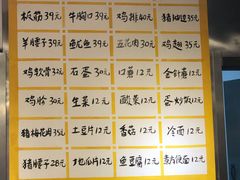 板筋39元 牛胸口39元 鸡排40元 猪油边35元
羊腰子39元 鱿鱼39元 五花肉30元 鸡翅35元
鸡软骨32元 石蛋30元 口蘑12元 金针菇12元
鸡胗30元 生菜12元 酸菜12元 蛋炒饭12元
猪梅花肉35元 土豆片12元 香菇12元 冷面12元
猪腰子28元 地瓜片12元 鱼豆腐12元 麦片便面12元